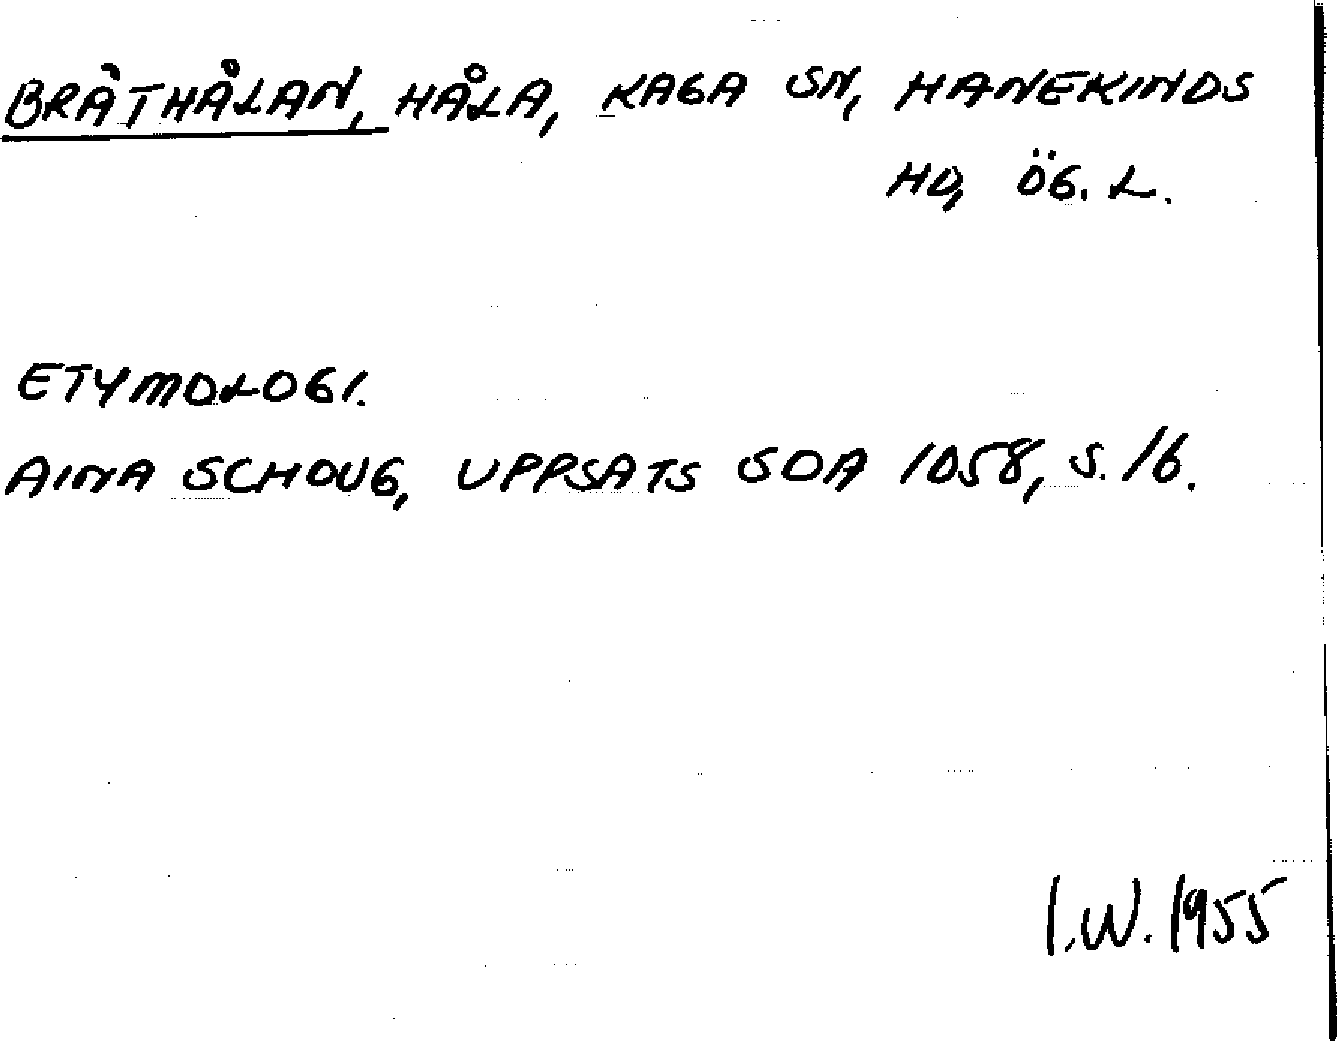 BRÅTHÅLAN, HÅLA, KAGA SN, HANEKINDS
HD, ÖG. L.
ETYMOLOGI.
AINA SCHOUG, UPPSATS SOA 1058, S. 16.
I.W. 1955